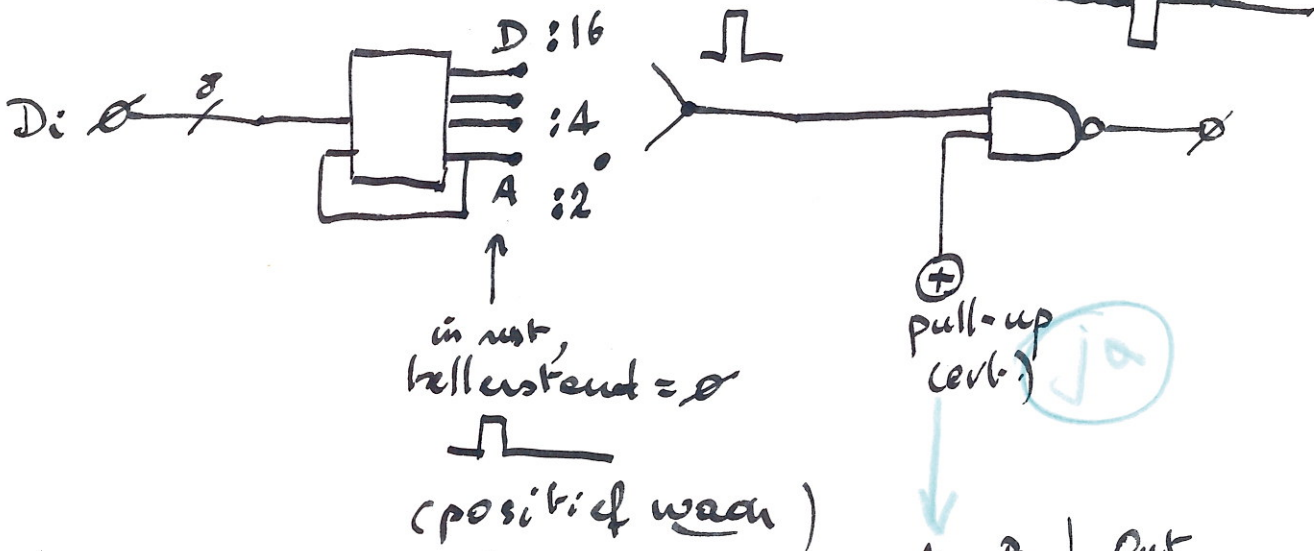 D :16
Di
8
:4
A :2
in rust,
tellerstand = ø
(positief waar)
+
pull-up
(evt.)
ja
A B | Out